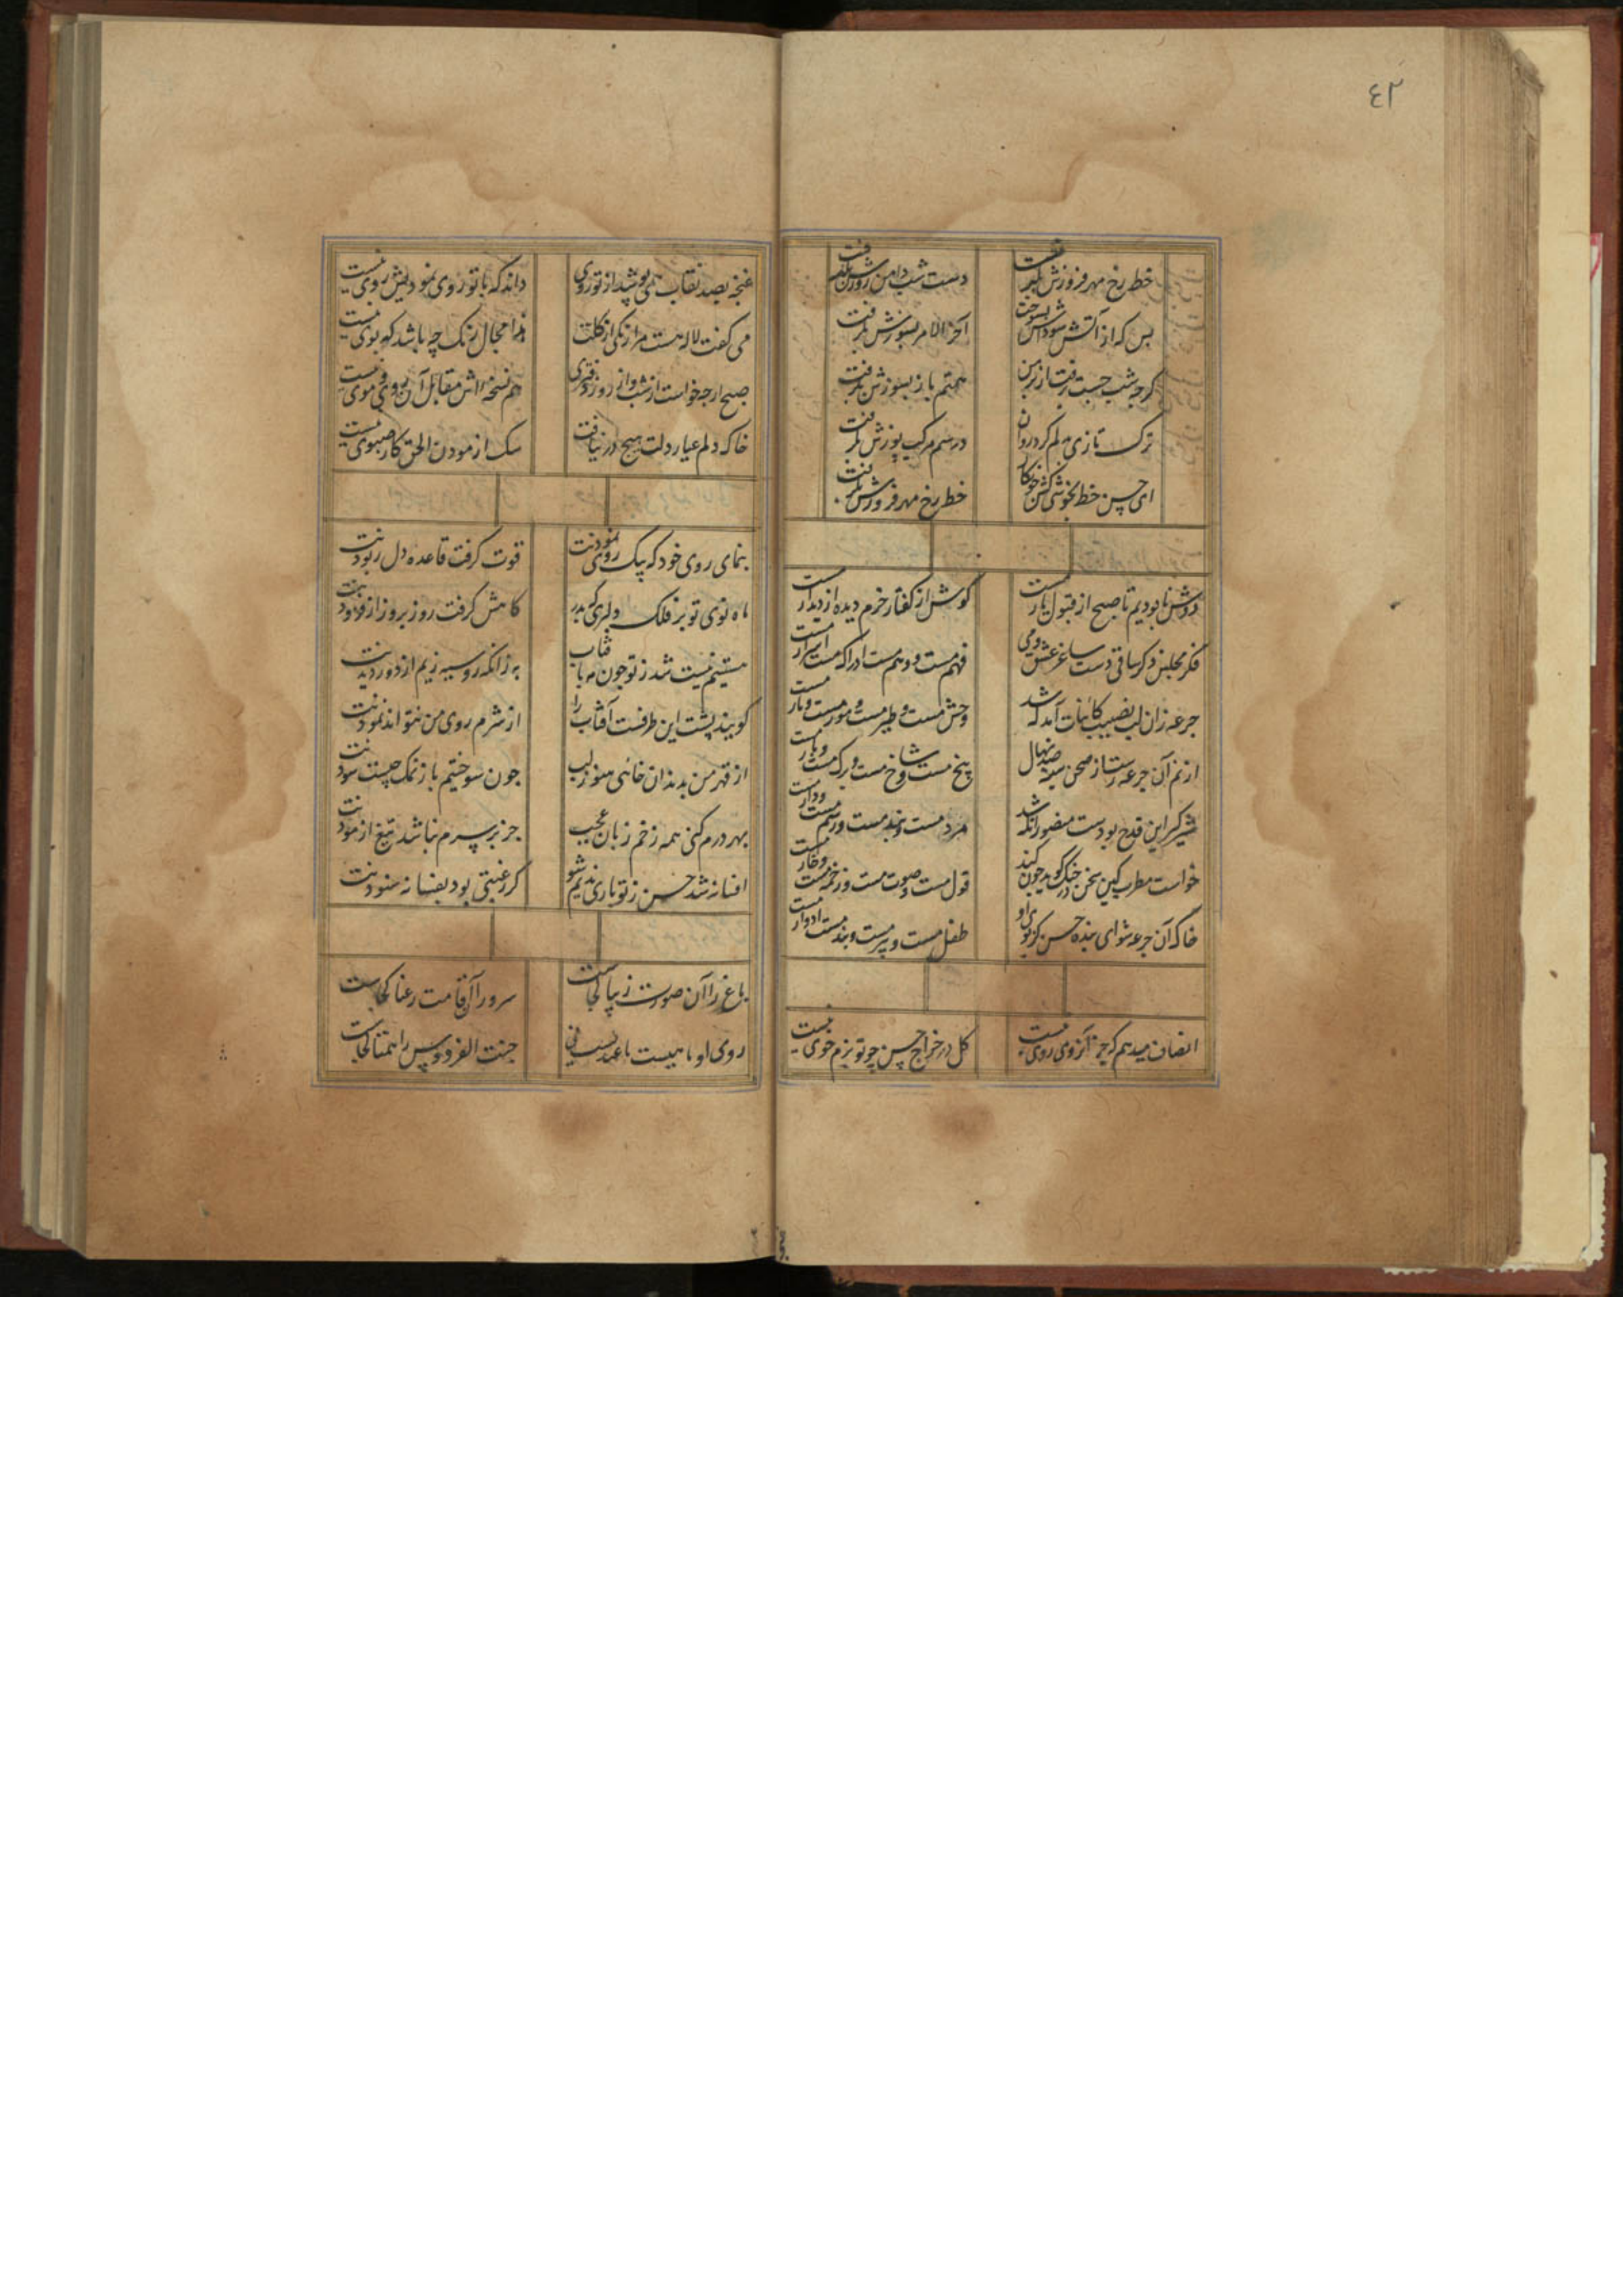 ٤٢
خط رخ مهر فروزش بگرفت
دست شب دامن روزش بگرفت
بس که از آتش سوداش بسوخت
آخر الامر بسوزش بگرفت
گرچه شب جست برفت از بر من
هم باز بسوزش بگرفت
ترک تازی دلم کرد روان
در سم مرکب بوزش بگرفت
ای حسن خط بخوشی کش
خط رخ مهر فروزش بگرفت
دوش ما بودیم تا صبح از قبول یار مست
گوش از گفتار خرم دیده از دیدار مست
فکر مجلس ذکر ساقی دست ساغر عشق می
فهم مست و وهم مست ادراک مست اسرار مست
جرعه زان لب نصیب کائنات آمد که شد
وحش مست و طیر مست و مور مست و مار مست
از نم آن جرعه رست از صحن سینه صد نهال
بیخ مست و شاخ مست و برگ مست و بار مست
شیر گیر این قدح بودست منصور آنکه شد
مرد مست و بند مست و رسم مست و دار مست
خواست مطرب کین سخن در چنگ گوید چون کند
قول مست و صوت مست و زخمه مست و تار مست
خاک آن جرعه شو ای بنده حسن کز بوی او
طفل مست و پیر مست و بند مست ادوار مست
انصاف میدهم که جز آن روی روی نیست
گل در خراج حسن چو تو بزم خوی نیست
غنچه بصد نقاب همی پوشد از تو روی
داند که با تو روی نمودنش روی نیست
می گفت لاله هست مرا رنگی از گلت
مجال رنگ چه باشد که بوی نیست
صبح ارچه خواست از شب و از روز دفتری
هم نسخه اش مقابل آن روی و موی نیست
خاک دلم عیار دلت هیچ در نیافت
سنگ آزمودن الحق کار سبوی نیست
بنمای روی خود که بیک روی نمودنت
قوت گرفت قاعده دل ربودنت
ماه نوی تو بر فلک دلبری که بدر
کاهش گرفت روز بروز از فزودنت
به زانکه رو سیه زیم از دور دیدنت
گویند پشت این طرفست آفتاب را
از شرم روی من نتواند نمودنت
از قهر من بدندان خائی هنوز لب
چون سوختیم باز نمک چیست سودنت
بهر درم کنی همه زخم زبان عجب
جز بر سرم نباشد تیغ آزمودنت
افسانه شد حسن ز تو باری ندیم شو
گر رغبتی بود بفسانه شنودنت
باغ را آن صورت زیبا کجاست
سرو را آن قامت رعنا کجاست
روی او ماهیست با عهد نسب نی
جنت الفردوس را همتا کجاست